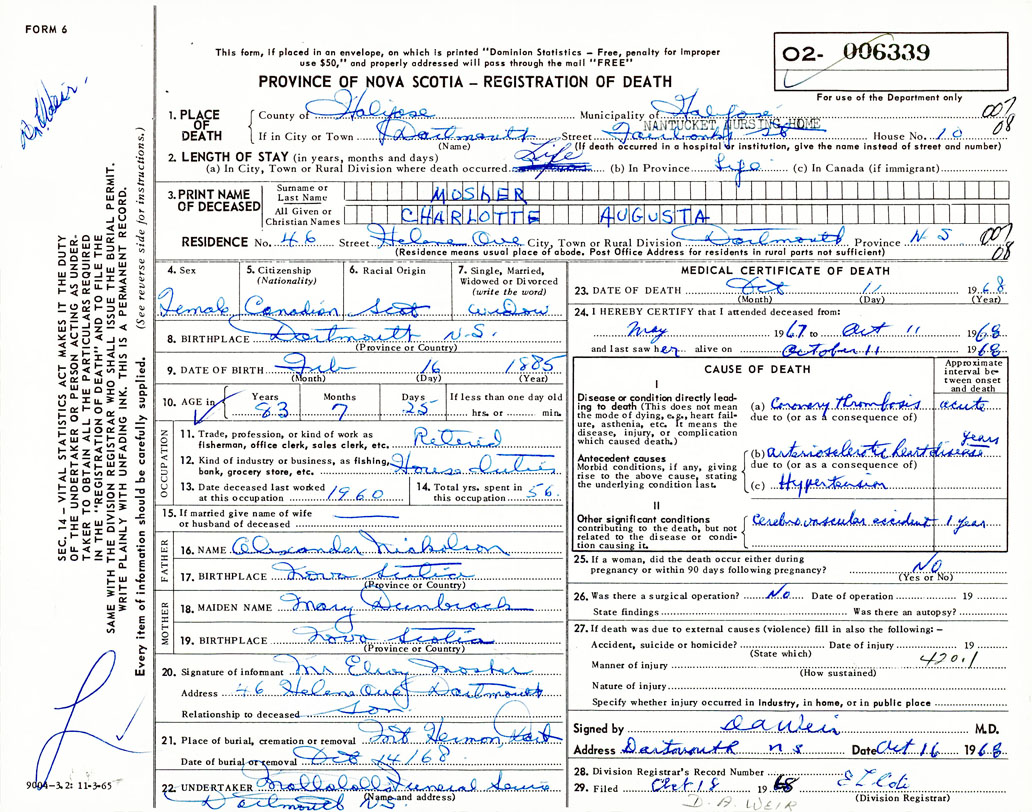 FORM 6
This form, if placed in an envelope, on which is printed "Dominion Statistics – Free, penalty for improper
use $50," and properly addressed will pass through the mail "FREE"
PROVINCE OF NOVA SCOTIA – REGISTRATION OF DEATH
02- 006339
For use of the Department only
Dr. Weir
SEC. 14 – VITAL STATISTICS ACT MAKES IT THE DUTY
OF THE UNDERTAKER OR PERSON ACTING AS UNDER-
TAKER TO OBTAIN ALL THE PARTICULARS REQUIRED
IN THE "REGISTRATION OF DEATH" AND TO FILE THE
SAME WITH THE DIVISION REGISTRAR WHO SHALL ISSUE THE BURIAL PERMIT.
WRITE PLAINLY WITH UNFADING INK. THIS IS A PERMANENT RECORD.
Every item of information should be carefully supplied. (See reverse side for instructions.)
1. PLACE OF DEATH
County of Halifax Municipality of Halifax 007
NANTUCKET NURSING HOME 08
If in City or Town Dartmouth Street Fairbanks St House No. 10
(Name) (If death occurred in a hospital or institution, give the name instead of street and number)
2. LENGTH OF STAY (in years, months and days) Life
(a) In City, Town or Rural Division where death occurred (b) In Province Life (c) In Canada (if immigrant)
3. PRINT NAME OF DECEASED
Surname or Last Name MOSHER
All Given or Christian Names CHARLOTTE AUGUSTA
RESIDENCE No. 46 Street Helene Ave City, Town or Rural Division Dartmouth Province N S 007 08
(Residence means usual place of abode. Post Office Address for residents in rural parts not sufficient)
4. Sex Female
5. Citizenship (Nationality) Canadian
6. Racial Origin Scot
7. Single, Married, Widowed or Divorced (write the word) Widow
8. BIRTHPLACE Dartmouth N.S.
(Province or Country)
9. DATE OF BIRTH Feb 16 1885
(Month) (Day) (Year)
10. AGE in Years 83 Months 7 Days 25 If less than one day old hrs. or min.
OCCUPATION
11. Trade, profession, or kind of work as fisherman, office clerk, sales clerk, etc. Retired
12. Kind of industry or business, as fishing, bank, grocery store, etc. House Duties
13. Date deceased last worked at this occupation 1960
14. Total yrs. spent in this occupation 56
15. If married give name of wife or husband of deceased
FATHER
16. NAME Alexander Nickolson
17. BIRTHPLACE Nova Scotia
(Province or Country)
MOTHER
18. MAIDEN NAME Mary Dumbrack
19. BIRTHPLACE Nova Scotia
(Province or Country)
20. Signature of informant Mr Elroy Mosher
Address 46 Helene Ave Dartmouth
Relationship to deceased Son
21. Place of burial, cremation or removal Mt Hermon Dart
Date of burial or removal Oct 14/68
22. UNDERTAKER Funeral Service
(Name and address)
Dartmouth N.S.
9004-3.2: 11-3-65
MEDICAL CERTIFICATE OF DEATH
23. DATE OF DEATH Oct 11 1968
(Month) (Day) (Year)
24. I HEREBY CERTIFY that I attended deceased from:
May 1967 to Oct 11 1968
and last saw her alive on October 11 1968
CAUSE OF DEATH
Approximate interval between onset and death
I
Disease or condition directly leading to death (This does not mean the mode of dying, e.g., heart failure, asthenia, etc. It means the disease, injury, or complication which caused death.)
(a) Coronary thrombosis acute
due to (or as a consequence of)
Antecedent causes
Morbid conditions, if any, giving rise to the above cause, stating the underlying condition last.
(b) arteriosclerotic heart disease years
due to (or as a consequence of)
(c) Hypertension
II
Other significant conditions contributing to the death, but not related to the disease or condition causing it.
Cerebrovascular accident 1 year
25. If a woman, did the death occur either during pregnancy or within 90 days following pregnancy? No
(Yes or No)
26. Was there a surgical operation? No Date of operation 19
State findings Was there an autopsy?
27. If death was due to external causes (violence) fill in also the following: –
Accident, suicide or homicide? Date of injury 19
(State which) 420.1
Manner of injury
(How sustained)
Nature of injury
Specify whether injury occurred in Industry, in home, or in public place
Signed by D A Weir M.D.
Address Dartmouth N S Date Oct 16 1968
28. Division Registrar's Record Number
29. Filed Oct 18 1968
(Division Registrar)
D. A. WEIR